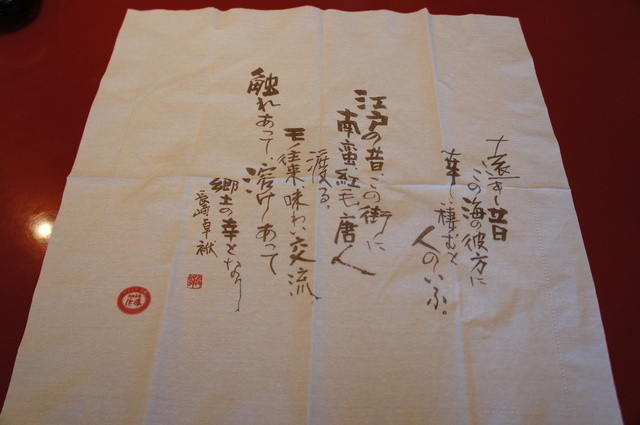 遠き昔
この海の彼方に
華し棲むと
人のいふ。
江戸の昔この街に
南蛮紅毛唐人
渡る。
モノ往来味わい交流、
触れあって溶けあって
郷土の幸となりし
長崎卓袱